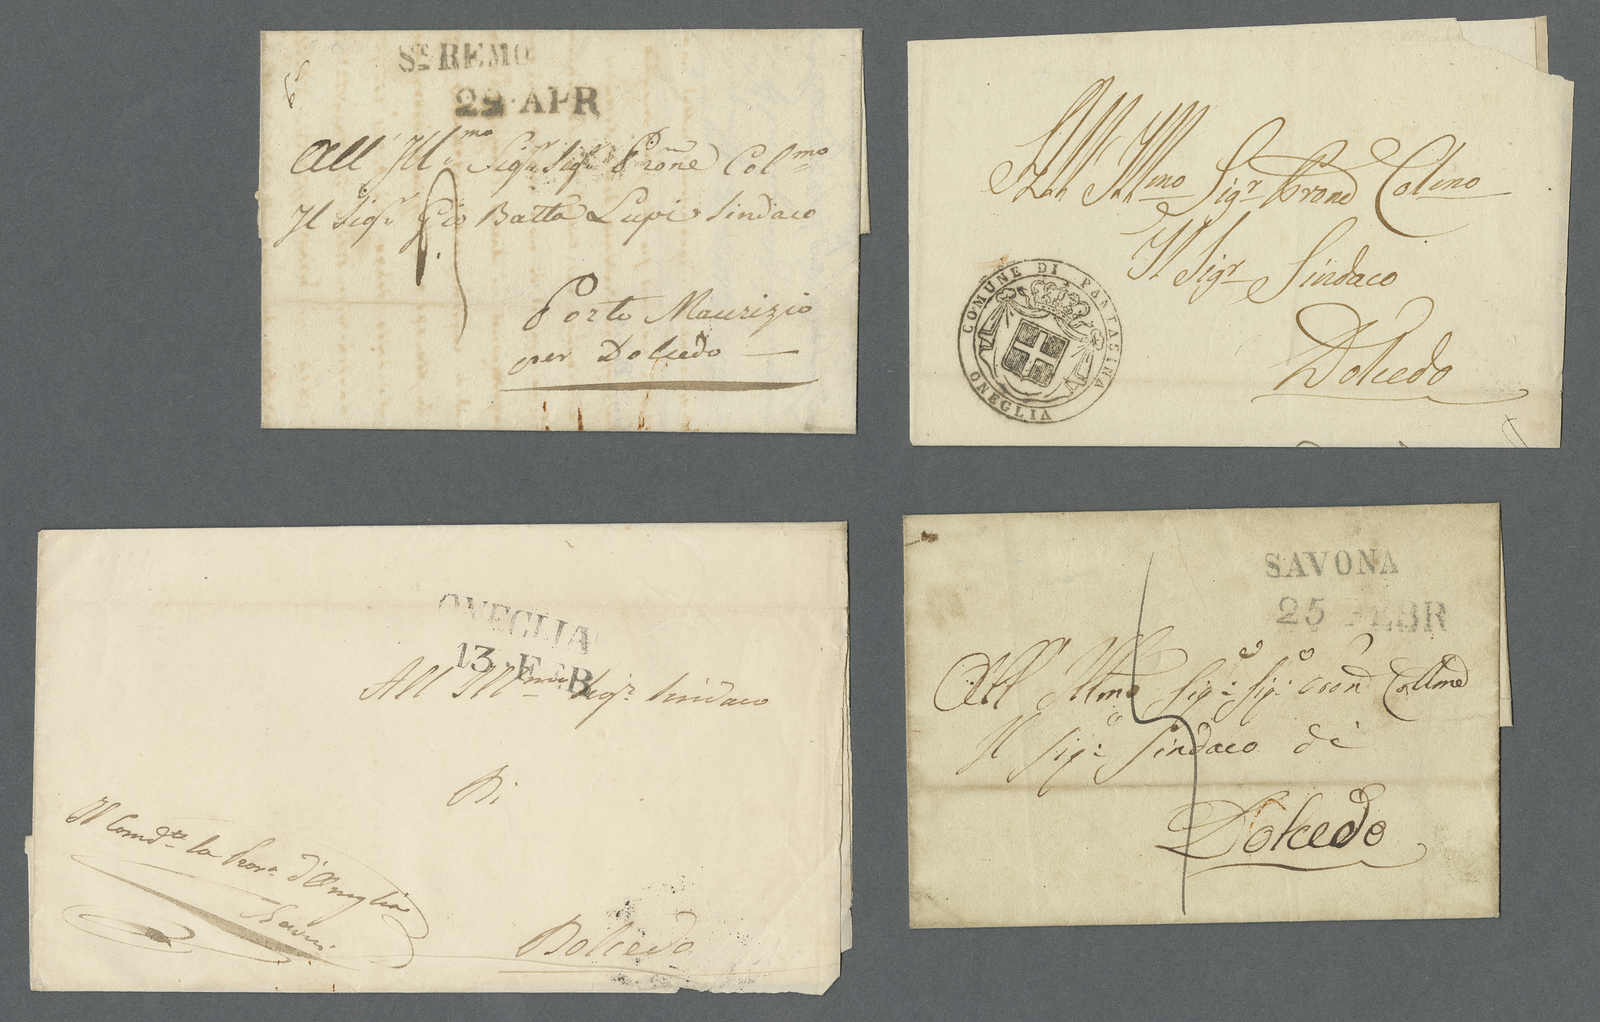 Sᵗ REMO
29 APR
All' Ill.ᵐᵒ Sigʳ Sigʳ Pròne Colᵐᵒ
Il Sigʳ Gio Batta Lupi Sindaco
Porto Maurizio
per Dolcedo
All' Illmo Sigʳ Prone Colmo
Il Sigʳ Sindaco
Dolcedo
COMUNE DI PANTASINA
ONEGLIA
ONEGLIA
13 FEB
All' Illᵐᵒ Sigʳ Sindaco
Di
Dolcedo
Il Comdᵗᵉ la Provᵃ d'Oneglia
SAVONA
25 FEBR
All' Illmo Sigʳ: Sigʳ: Pron Collmo
Il Sigʳ: Sindaco di
Dolcedo